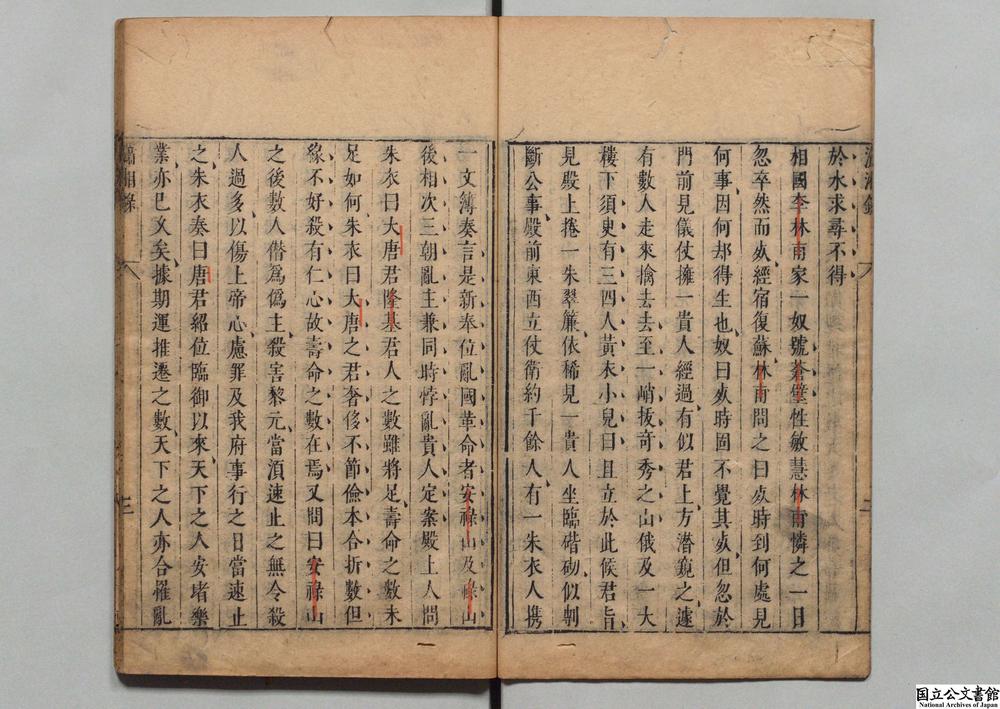 瀟湘錄
於水求尋不得
相國李林甫家一奴號蒼璧性敏慧林甫憐之一日
忽卒然而死經宿復蘇林甫問之曰死時到何處見
何事因何却得生也奴曰死時固不覺其死但忽於
門前見儀仗擁一貴人經過有似君上方潛窺之遽
有數人走來擒去去至一峭拔奇秀之山俄及一大
樓下須臾有三四人黃衣小兒曰且立於此候君旨
見殿上捲一朱翠簾依稀見一貴人坐臨砌似剸
斷公事殿前東西立仗衛約千餘人有一朱衣人携
一文簿奏言是新奉位亂國革命者安祿山及祿山
後相次三朝亂主兼同時悖亂貴人定案殿上人問
朱衣曰大唐君隆基君人之數雖將足壽命之數未
足如何朱衣曰大唐之君奢侈不節儉本合折數但
緣不好殺有仁心故壽命之數在焉又問曰安祿山
之後數人僭爲僞主殺害黎元當須速止之無令殺
人過多以傷上帝心慮罪及我府事行之日當速止
之朱衣奏曰唐君紹位臨御以來天下之人安堵樂
業亦已久矣據期運推遷之數天下之人亦合罹亂
瀟湘錄
三
国立公文書館
National Archives of Japan